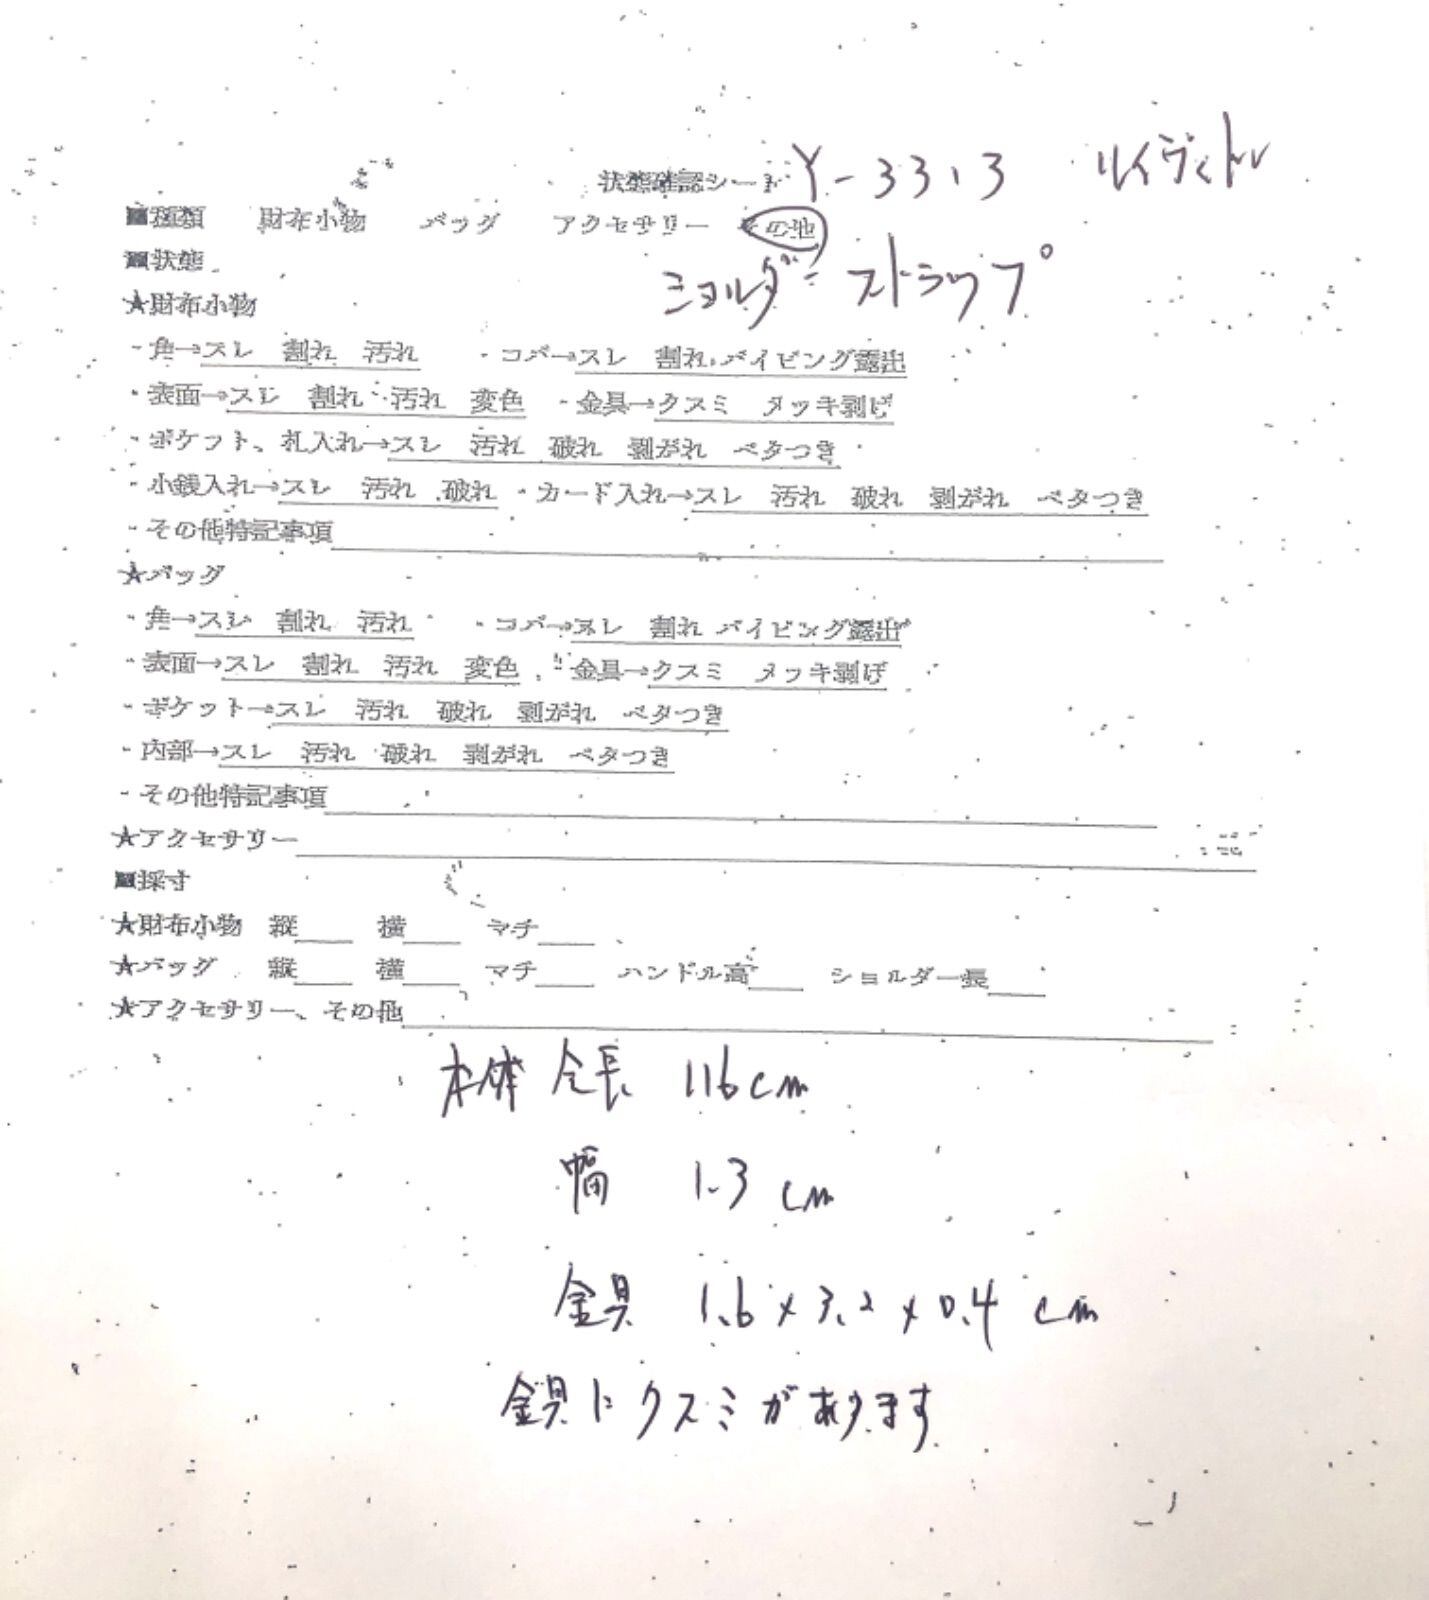 状態確認シート Y-3313 ルイヴィトン
■種類 財布小物 バッグ アクセサリー その他
■状態 ショルダーストラップ
★財布小物
・角→スレ 割れ 汚れ ・コバ→スレ 割れ パイピング露出
・表面→スレ 割れ 汚れ 変色 ・金具→クスミ メッキ剥げ
・ポケット、札入れ→スレ 汚れ 破れ 剥がれ ベタつき
・小銭入れ→スレ 汚れ 破れ ・カード入れ→スレ 汚れ 破れ 剥がれ ベタつき
・その他特記事項
★バッグ
・角→スレ 割れ 汚れ ・コバ→スレ 割れ パイピング露出
・表面→スレ 割れ 汚れ 変色 ・金具→クスミ メッキ剥げ
・ポケット→スレ 汚れ 破れ 剥がれ ベタつき
・内部→スレ 汚れ 破れ 剥がれ ベタつき
・その他特記事項
★アクセサリー
■採寸
★財布小物 縦 横 マチ
★バッグ 縦 横 マチ ハンドル高 ショルダー長
★アクセサリー、その他
本体 全長 116cm
幅 1.3cm
金具 1.6×3.2×0.4cm
金具にクスミがあります